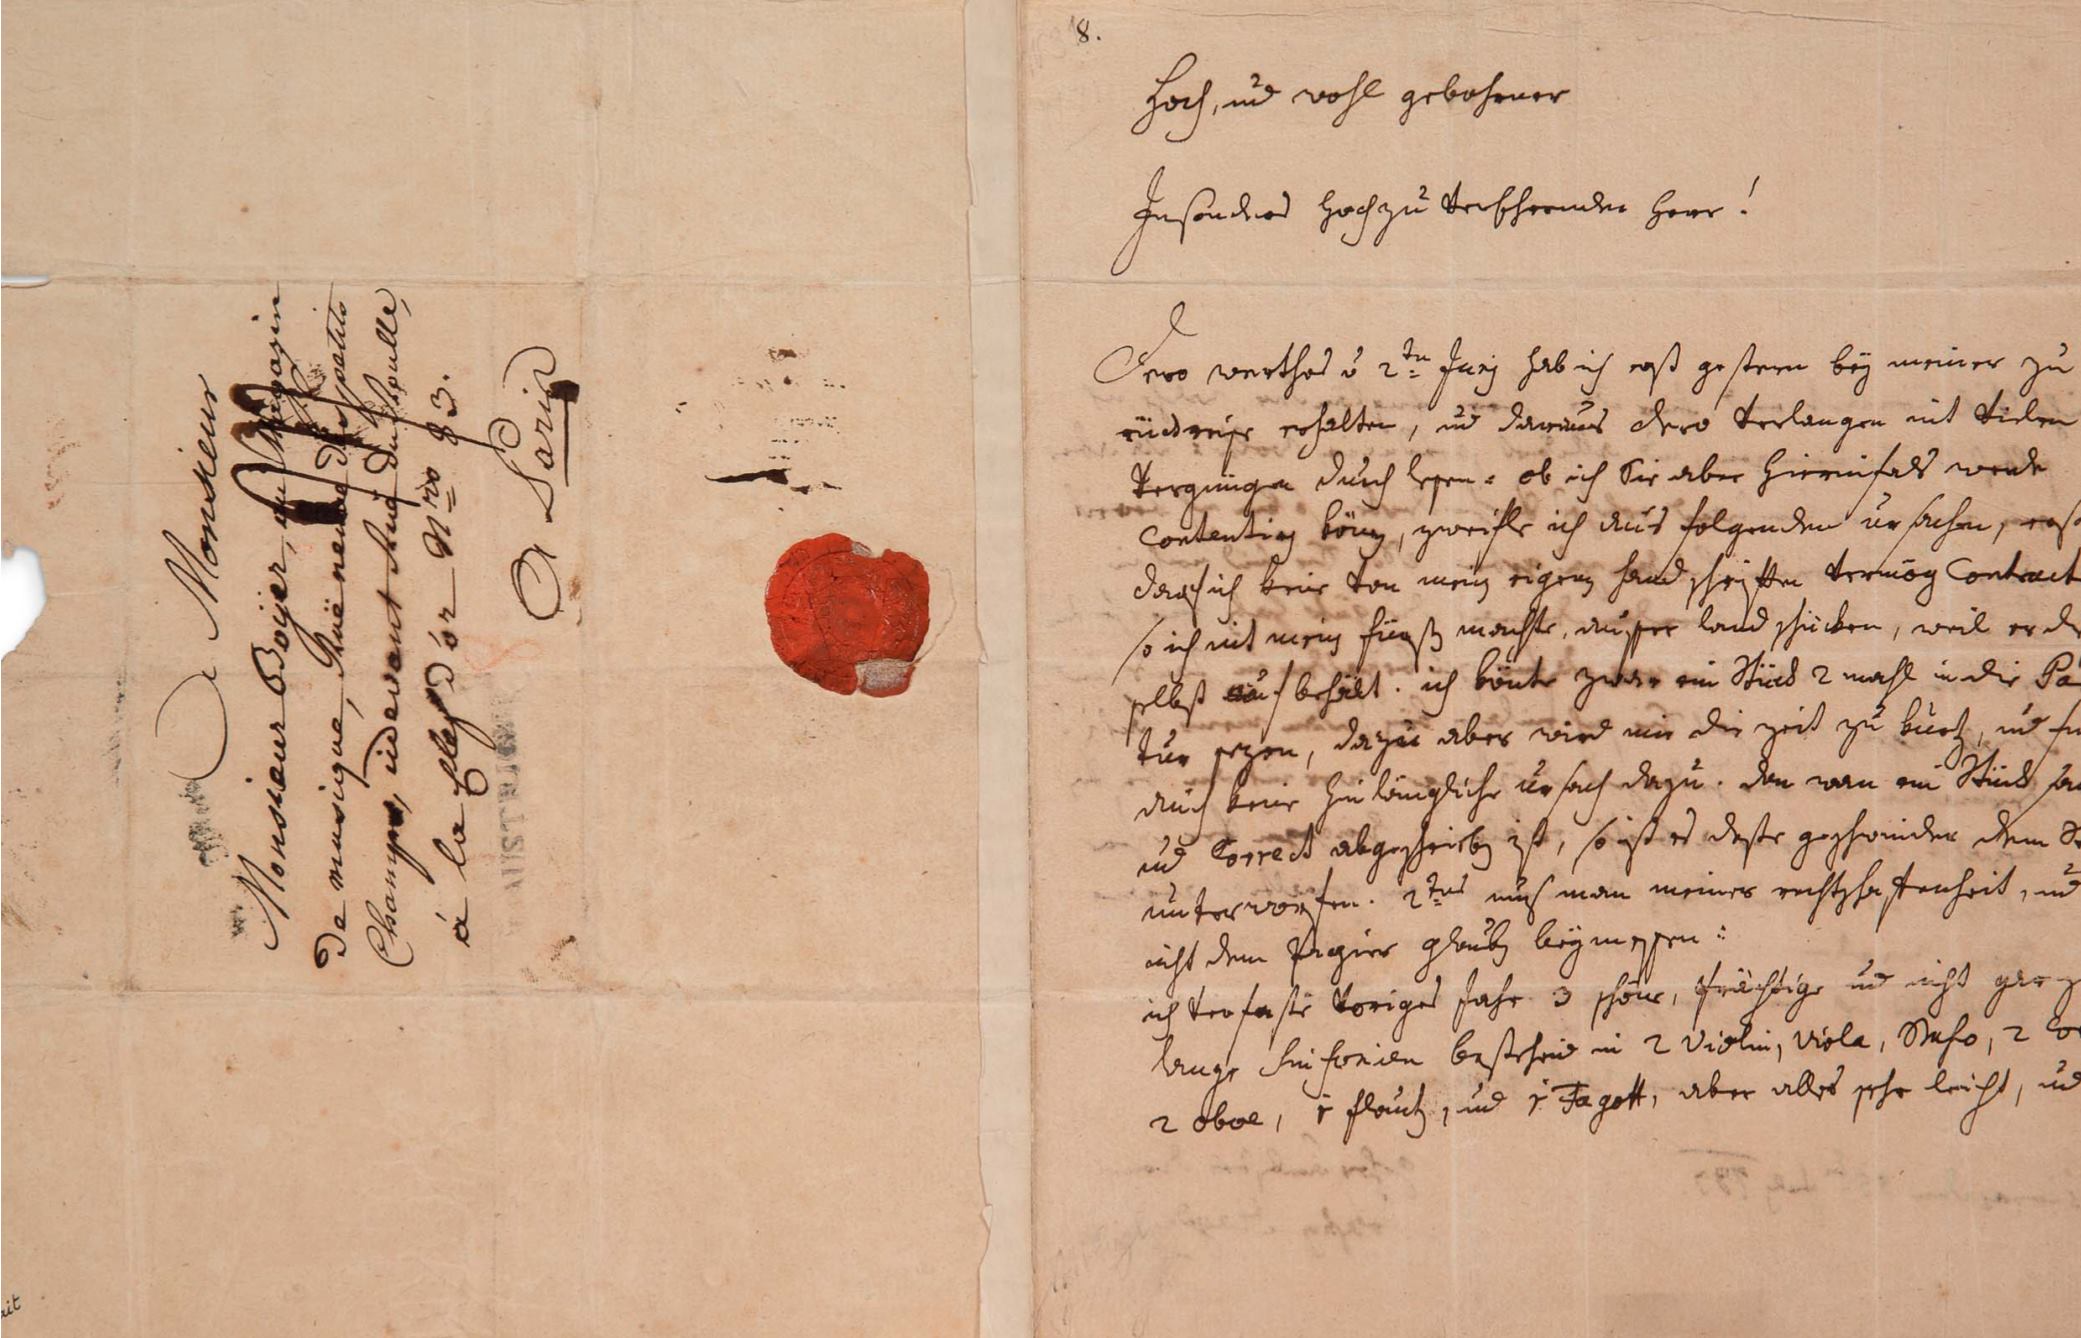 A Monsieur
Monsieur Boyer, au Magazin
de musique, Rue neuve des petits
Champs, cidevant Rue du Roulle,
á la Clef d'or Nro 83.
A Paris
8.
Hoch, und wohl gebohrner
Insonders hochzu Verehrender Herr!
Dero werthes v 2ten Juny hab ich erst gestern bey meiner zu
rückreise erhalten, und daraus dero Verlangen mit Vielen
Vergnügen durch lesen: ob ich Sie aber hierinfals werde
Contentirn könn, zweifle ich aus folgenden ursachen, erst
darf ich keine Von mein eigenen handschriften Vermög Contract
so ich mit mein fürst machte, ausser land schicken, weil er di
selbst aufbehält. ich könte zwar ein Stück 2 mahl in die Pa
tur sezen, dazu aber wird mir die zeit zu kurtz, und fin
auch keine hinlängliche ursach dazu. dan wan ein Stück sau
und Correct abgeschrieben ist, so ist es desto geschwinder dem St
unterworfen. 2tens mus man meiner rechtschaffenheit, und
nicht dem Papier glauben beymessen:
ich Verfaste Voriges Jahr 3 schöne, prächtige und nicht gar z
lange Sinfonien bestehend in 2 Violin, Viola, Basso, 2 Co
2 Oboe, 1 flaut, und 1 Fagott, aber alles sehr leicht, und